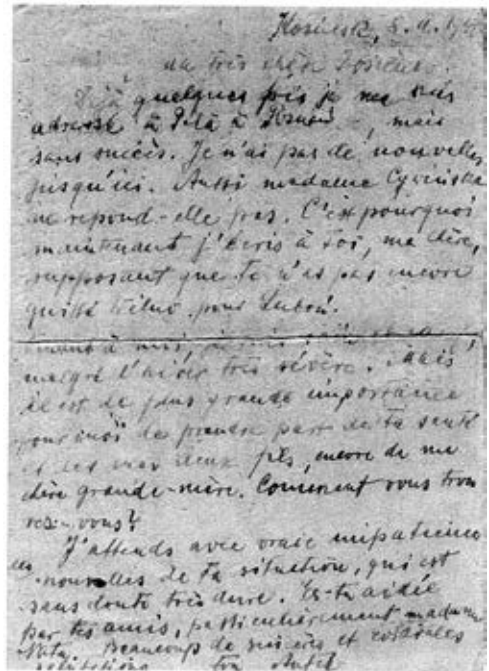 Kosielsk,
Ma très chère
Déjà quelques fois je me suis
adressé à Pila à, mais
sans succès. Je n'ai pas de nouvelles
jusqu'ici. Aussi madame Cywińska
ne repond-elle pas. C'est pourquoi
maintenant j'écris à toi, ma chère,
supposant que tu n'as pas encore
quitté Wilno pour Luboń.
Quant à moi, je suis
malgré l'hiver très sévère. Mais
il est de plus grande importance
pour moi de prendre part de ta santé
et des mes deux fils, encore de ma
chère grande-mère. Comment vous trou
vez-vous?
J'attends avec vraie impatience
les nouvelles de ta situation, qui est
sans doute très dure. Es-tu aidée
par tes amis, particulièrement madame
Beaucoup de sincères et cordiales
ton